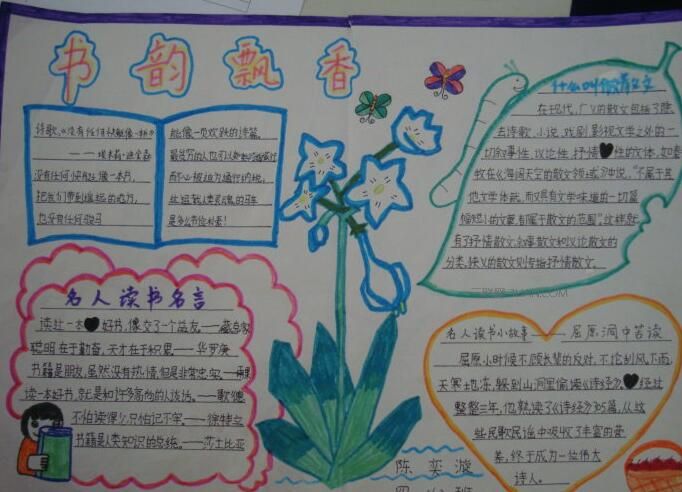 书韵飘香
诗歌《没有任何快艇像一本书》
——埃米莉·迪金森
没有任何快艇像一本书,
把我们带到遥远的地方,
也没有任何骏马
能像一页欢跃的诗篇
最贫穷的人也可以
而不必被迫为通行纳税,
这组载人类灵魂的马车
是多么节俭朴素!
名人读书名言
读过一本好书,像交了一个益友——臧克家
聪明在于勤奋,天才在于积累。——华罗庚
书籍是朋友,虽然没有热情,但是非常忠实。——雨果
读一本好书,就是和许多高尚的人谈话。——歌德
不怕读得少,只怕记不牢。——徐特立
书籍是人类知识的总统。——莎士比亚
什么叫做散文
在现代,广义的散文包括了除
去诗歌,小说,戏剧,影视文学之外的一
切叙事性,议论性,抒情性的文体,如秦
牧在《海阔天空的散文领域》中说,“不属于其
他文学体裁,而又具有文学味道的一切篇
幅短小的文章,都属于散文的范围”。这样就
有了抒情散文,叙事散文和议论散文的
分类,狭义的散文则专指抒情散文。
名人读书小故事——屈原洞中苦读
屈原小时候不顾长辈的反对,不论刮风下雨,
天寒地冻,躲到山洞里偷读《诗经》。经过
整整三年,他熟读了《诗经》305篇,从这
些民歌民谣中吸收了丰富的营
养,终于成为一位伟大
诗人。
陈奕漩